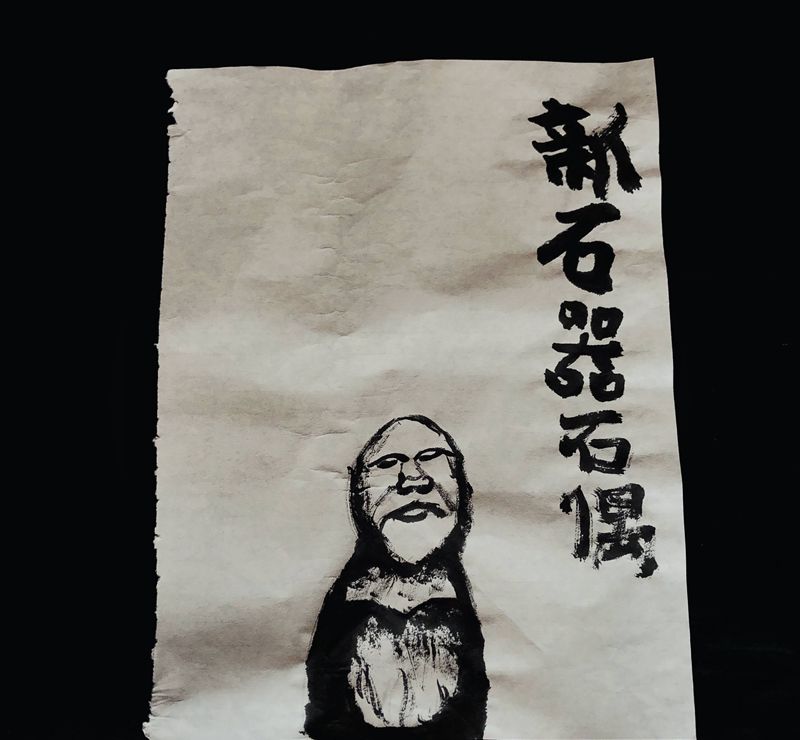 新石器石偶